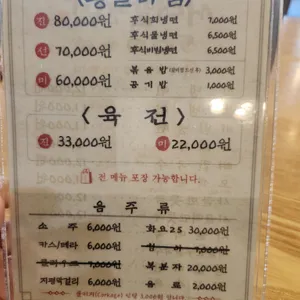 진 80,000원 후식회냉면 7,000원
선 70,000원 후식물냉면 6,500원
후식비빔냉면 6,500원
미 60,000원 볶음밥 3,000원
공기밥 1,000원
〈육전〉
진 33,000원 미 22,000원
전 메뉴 포장 가능합니다.
음주류
소주 6,000원 화요25 30,000원
카스/테라 6,000원
7,000원 복분자 20,000원
지평막걸리 6,000원 음료 2,000원